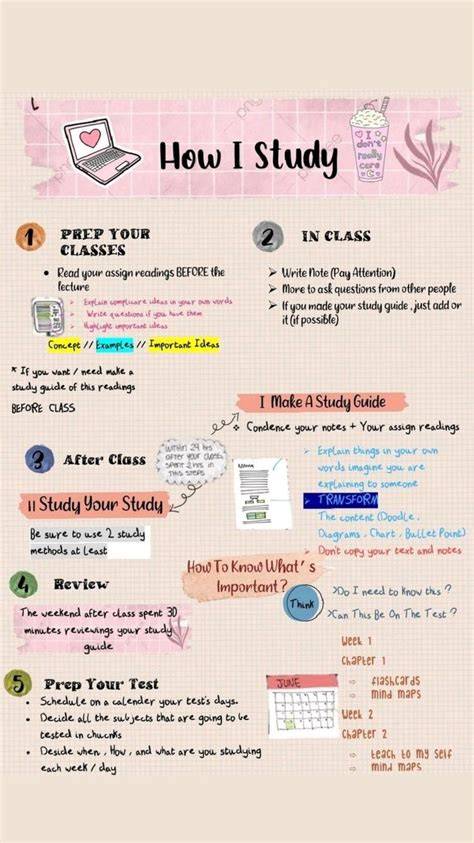 How I Study
I
don't
really
care
1
PREP YOUR
CLASSES
• Read your assign readings BEFORE the
lecture
➤ Explain complicare ideas in your own words
➤ Write questions if you have them
➤ Highlight important ideas
Concept // Examples // Important Ideas
* If you want / need make a
study guide of this readings
BEFORE CLASS
2
IN CLASS
➤ Write Note (Pay Attention)
➤ More to ask questions from other people
➤ If you made your study guide, just add or
it (if possible)
3
After Class
within 24 hrs
after your class,
spent 2 hrs in
this steps
I Make A Study Guide
Condence your notes + Your assign readings
➤ Explain things in your own
words imagine you are
explaining to someone
➤ TRANSFORM
The content (Doodle,
Diagrams, Chart, Bullet Point)
➤ Don't copy your text and notes
II Study Your Study
Be sure to use 2 study
methods at least
4
Review
The weekend after class spent 30
minutes reviewings your study
guide
How To Know What's
Important?
Think
>Do I need to know this?
>Can This Be On The Test?
5
Prep Your Test
• Schedule on a calender your test's days.
• Decide all the subjects that are going to be
tested in chucnks
• Deside when, How, and what are you studying
each week / day
JUNE
Week 1
Chapter 1
⇨ flashcards
⇨ mind maps
Week 2
Chapter 2
⇨ teach to my self
⇨ mind maps